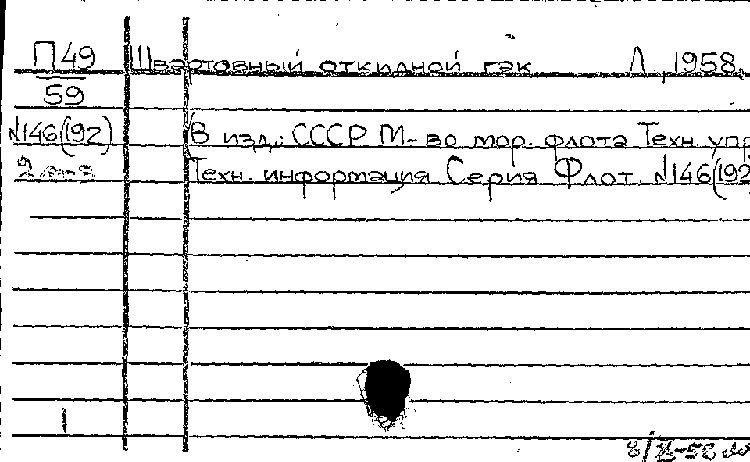 П49 Швартовный откидной гак Л, 1958.
59
N146(192) В изд.: СССР М-во мор. флота Техн. упр
2 Техн. информация. Серия Флот. N146(192
1